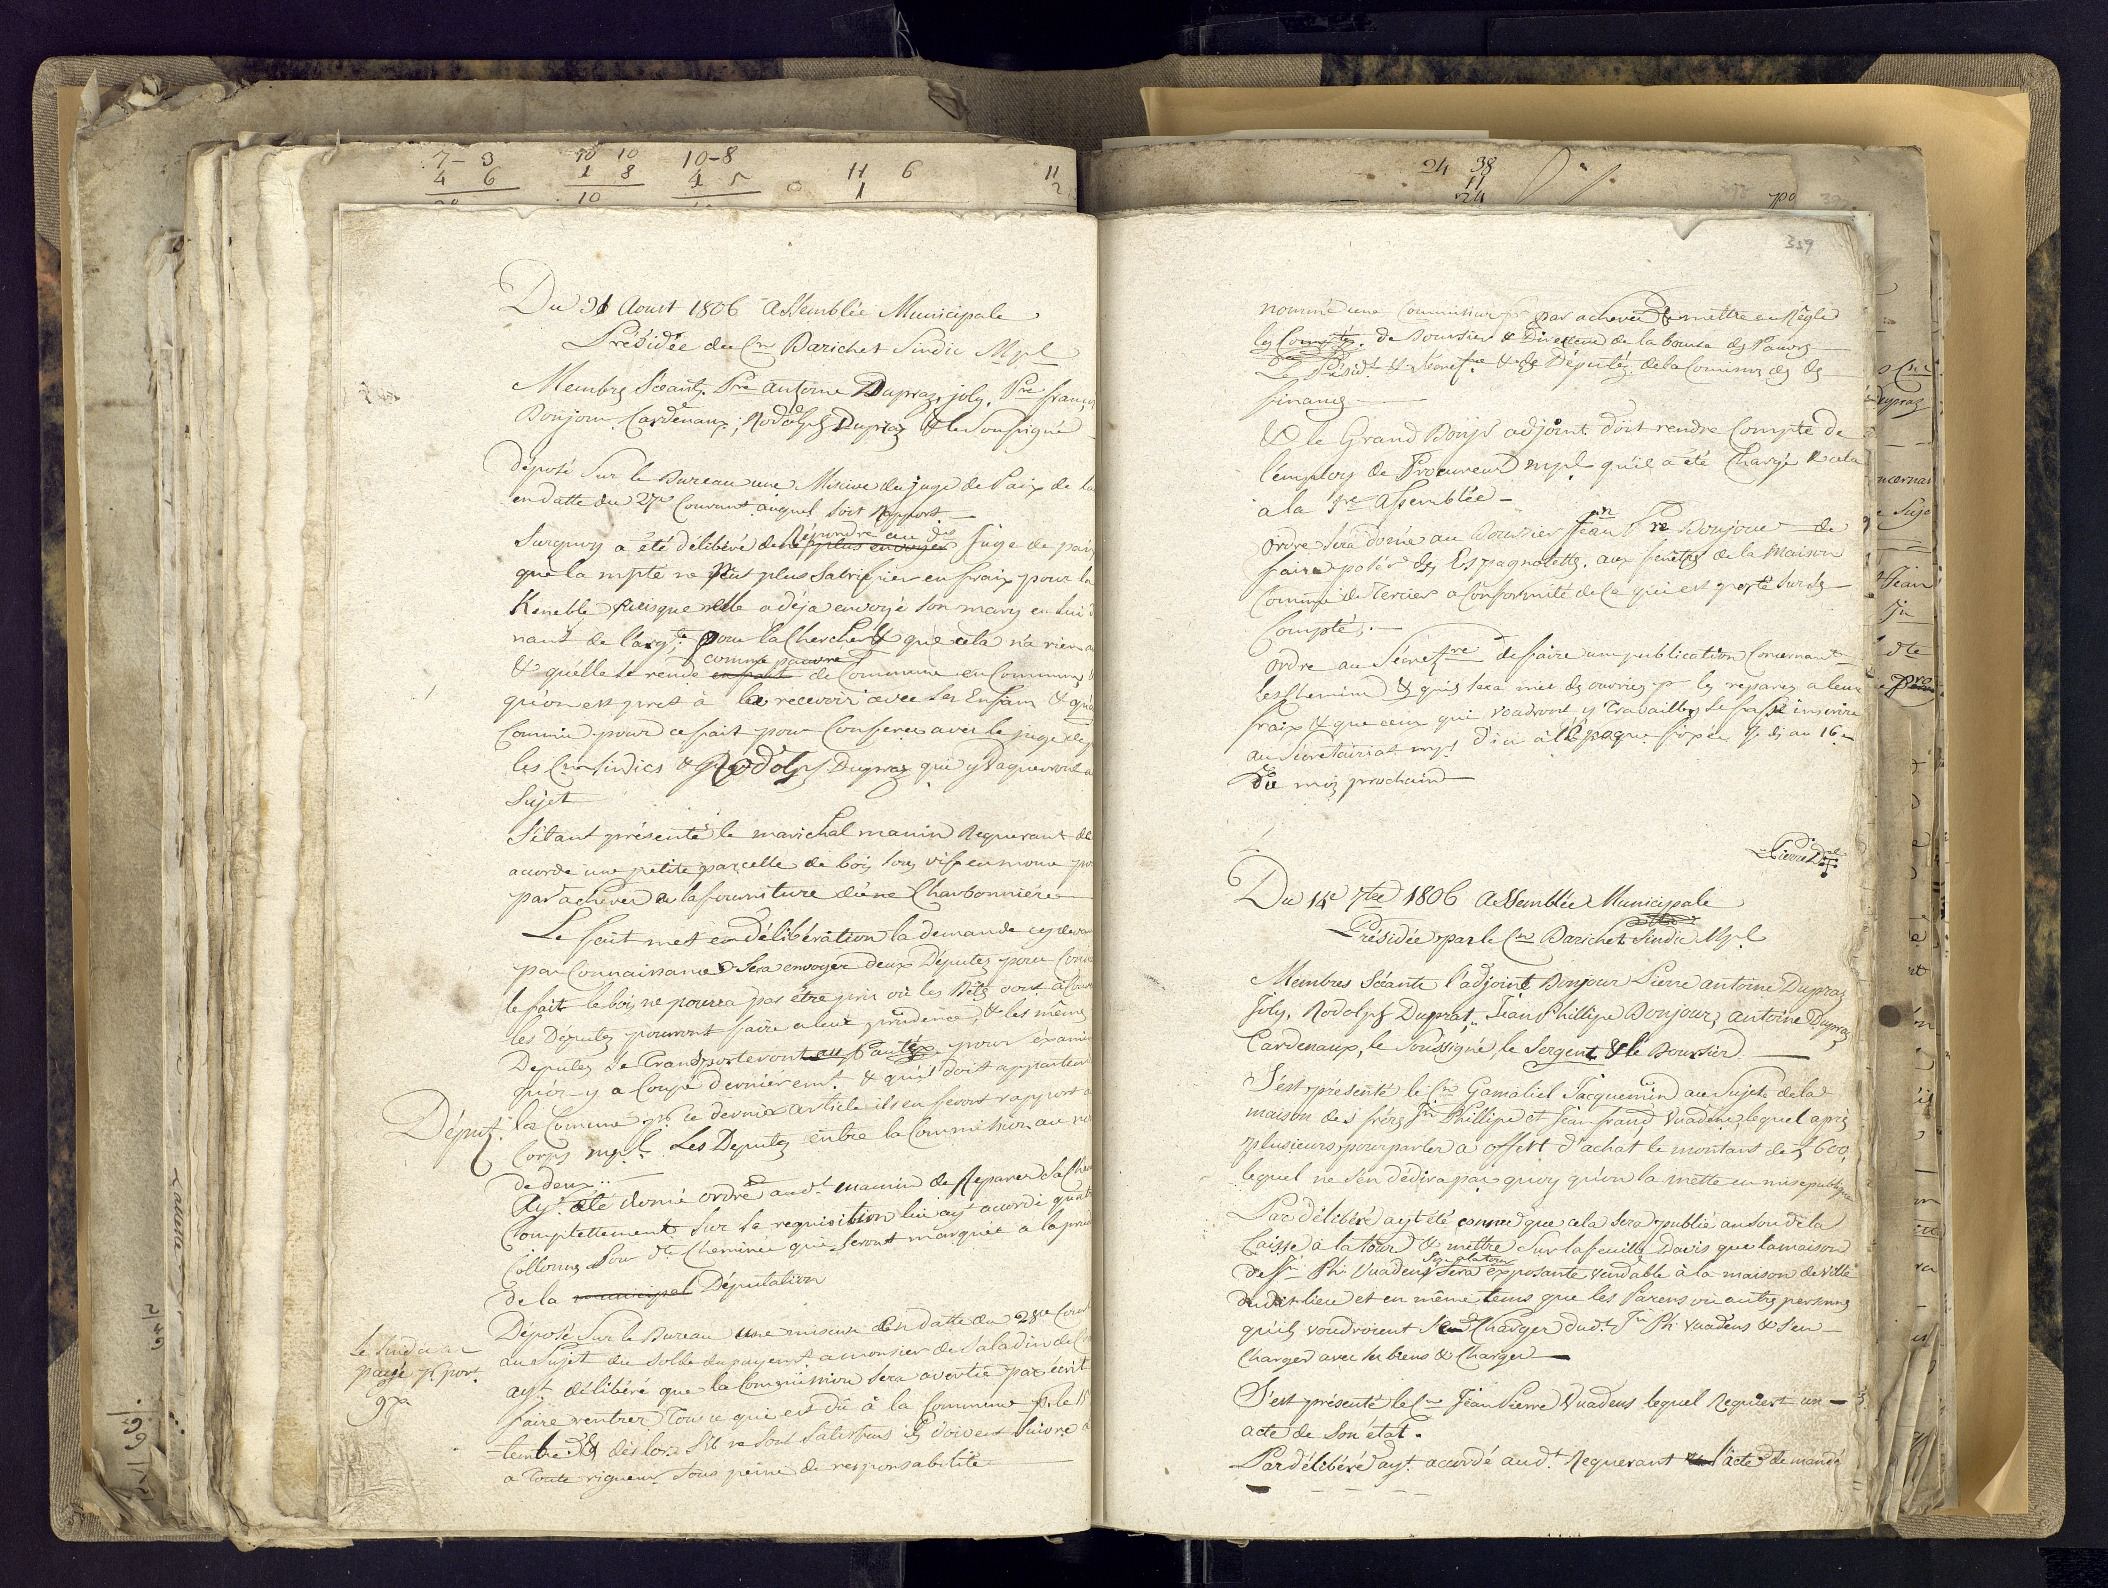 7-3 10 10 10-8 11 6 11
4 6 1 8 4 5 0 1 2
10
Du 31 Aoust 1806 Assemblée Municipale
Présidée du Cn Barichet Sindic Mpl
Membres Séants, Pre antoine Dupraz, joly, Pre françs
Bonjour Cardenaux, Rodolph Dupraz & le Soussigné
déposé Sur le Bureau une Missive du juge de Paix de la
en datte du 27e Courant auquel soit Rapport
Surquoy a été délibéré de Répondre au dit juge de paix
que la mpté ne peut plus Sacrifier en fraix pour la
Keneble puisque elle a déja envoyé son mary en lui d
nant de l'argt pour la Chercher & que cela n'a rien
& qu'elle se rende comme pauvre de Commune en Commune
qu'on est prest à la recevoir avec ses Enfans & qu'
Commis pour ce fait pour Conferer avec le juge de p
les Cns Sindics & Rodolph Dupraz qui y Vaqueront a
Sujet
S'étant présenté le marichal manin Requerant de
acordé une petite parcelle de bois sous vise en moue po
par achever la fourniture d'une Charbonniére
Le fait met en délibération la demande cy devan
par Connaissance Sera envoyer deux Députez pour Conn
le fait le bois ne pourra pas être pris où les Bêtes vont à Couv
les Députez pourront faire a leur prudence, & les mêmes
Deputez se Transporteront pour éxamin
qu'on y a Coupé derniérement & qu'il doit appartenir
Députz. la Commune pr ce dernier article ils en feront rapport a
Corps mpl. Les Deputez entre la Commission au no
de deux
Ayt été donné ordre aud.t manin de Reparer sa Chem
Complettement Sur sa requisition lui ayt acordé quat
Collonnes Pour dte Cheminée qui seront marquée a la pru
de la municipal Députation
Le Sindic a
payé pr port.
97a
Déposé Sur le Bureau une missive en datte du 28e Cour
au Sujet du Solde du payement a monsieur de Saladin de C
ayt délibéré que la Commission sera avertie par écrit
faire rentrer Tous ce qui est dû à la Commune pr le 15
tembre & dès lors S'il ne sont Satisfaits ils doivent Suivre
a toute rigueur Sous peine de responsabilité
24 38
11
24
359
nommé une Commission pr par achever de mettre en Règle
les Comptes de Boursier & Directeur de la bourse des Pauvres
Le Présidt & Secretre & les Députéz de la Commission des
finances
Et le Grand Bonjr adjoint doit rendre Compte de
l'employ de Procureur mpl qu'il a été Chargé & cela
a la 1re assemblée -
Ordre Sera donné au Boursier Jean Pre Bonjour de
faire poser des Espagnolettes aux fenêtres de la Maison
Commune de Tercier a Conformité de Ce qui est porté Sur les
Comptes.
Ordre au Sécretre de faire une publication Concernant
les Chemins & qu'il sera mis des ouvriers pr les reparer a leurs
fraix & que ceux qui voudront y Travailler se fasse inscrire
au Secretariat mpl d'ici à l'époque fixée au 16e
du mois prochain
Du 14e 7bre 1806 Assemblée Municipale
Présidée par le Cn Barichet Sindic Mpl
Membres Séants l'adjoint Bonjour Pierre antoine Dupraz
Joly, Rodolph Dupraz, Jean Phillipe Bonjour, antoine Dupraz
Cardenaux, le Soussigné, le Sergent & le Boursier
S'est présenté le Cn Gamaliel Jacquemin au Sujet de la
maison des fréres Jn Phillipe et Jean frans Vuadens, lequel après
plusieurs pourparler a offert d'achat le montant de £ 600,
lequel ne s'en dedira pas quoy qu'on la mette en mise publique
Par délibéré ayt été que cela Sera publié au Son de la
Caisse a la tour & mettre Sur la feuille Davis que la maison
de Jn Ph. Vuadens Sera exposante vendable à la maison de Ville
dudit lieu et en même tems que les Parens ou autres personnes
qu'ils voudroient Se Charger dud.t Jn Ph Vuadens & S'en
Charger avec ses biens & Charges
S'est présenté le Cn Jean Pierre Vuadens lequel Requiert un
acte de son état.
Par délibéré ayt. acordé aud.t Requerant l'acte demandé